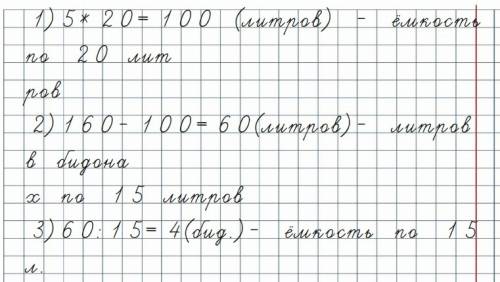 1) 5* 20= 100 (литров) - ёмкость
по 20 лит
ров
2) 160- 100= 60(литров)- литров
в бидона
х по 15 литров
3) 60: 15= 4(бид.)- ёмкость по 15
л.